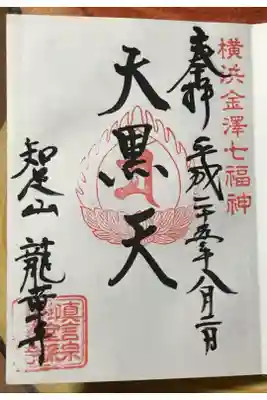 横浜金澤七福神
奉拝 平成二十五年八月二日
大黒天
知足山 龍華寺
眞言宗